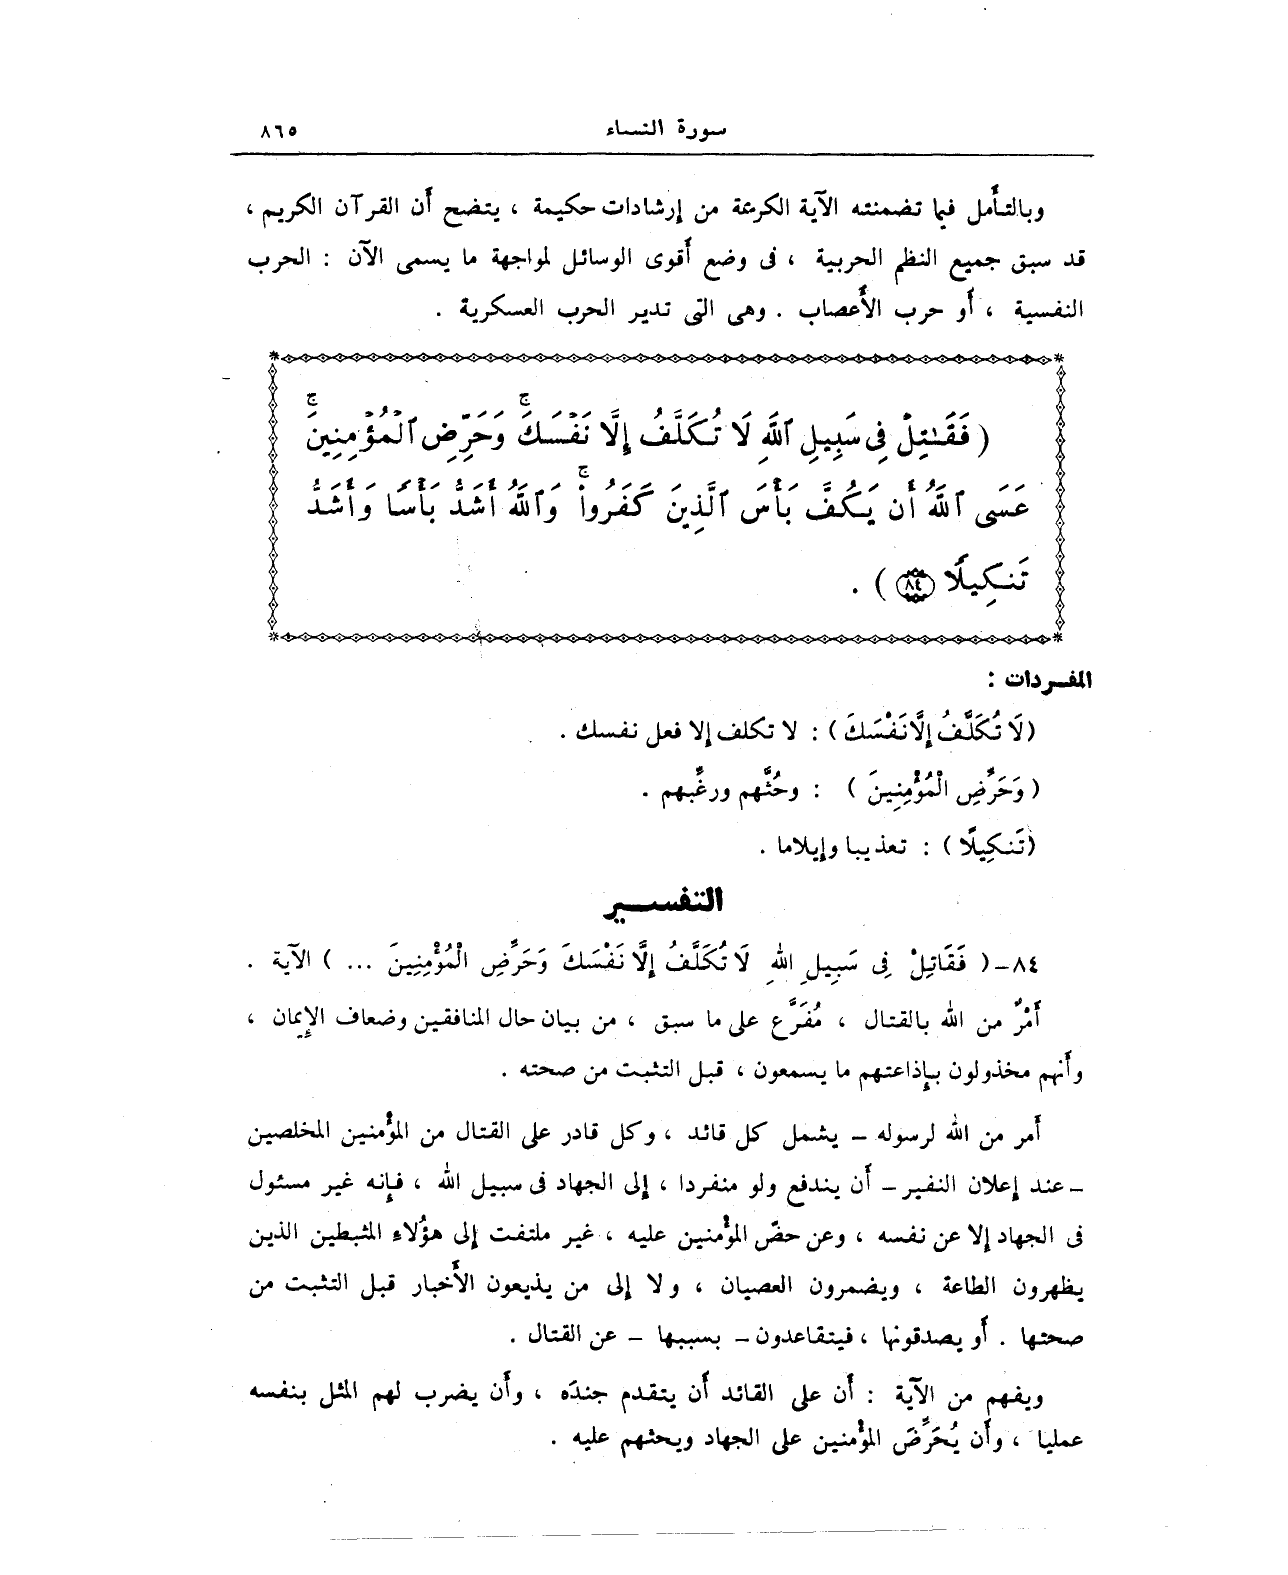 سورة النساء ٨٦٥
وبالتأمل فيما تضمنته الآية الكريمة من إرشادات حكيمة ، يتضح أن القرآن الكريم ،
قد سبق جميع النظم الحربية ، فى وضع أقوى الوسائل لمواجهة ما يسمى الآن : الحرب
النفسية ، أو حرب الأعصاب . وهى التى تدير الحرب العسكرية .
( فَقَـٰتِلْ فِى سَبِيلِ ٱللَّهِ لَا تُكَلَّفُ إِلَّا نَفْسَكَ ۚ وَحَرِّضِ ٱلْمُؤْمِنِينَ ۖ
عَسَى ٱللَّهُ أَن يَكُفَّ بَأْسَ ٱلَّذِينَ كَفَرُوا۟ ۚ وَٱللَّهُ أَشَدُّ بَأْسًا وَأَشَدُّ
تَنكِيلًا ﴿٨٤﴾ ) .
المفـردات :
(لَا تُكَلَّفُ إِلَّا نَفْسَكَ) : لا تكلف إلا فعل نفسك .
( وَحَرِّضِ الْمُؤْمِنِينَ ) : وحُثَّهم ورغِّبهم .
(تَنكِيلًا) : تعذيبا وإيلاما .
التفسـير
٨٤-( فَقَاتِلْ فِى سَبِيلِ اللهِ لَا تُكَلَّفُ إِلَّا نَفْسَكَ وَحَرِّضِ الْمُؤْمِنِينَ ... ) الآية .
أَمْرٌ من الله بالقتال ، مُفَرَّع على ما سبق ، من بيان حال المنافقين وضعاف الإيمان ،
وأنهم مخذولون بإذاعتهم ما يسمعون ، قبل التثبت من صحته .
أمر من الله لرسوله – يشمل كل قائد ، وكل قادر على القتال من المؤمنين المخلصين
– عند إعلان النفير – أن يندفع ولو منفردا ، إلى الجهاد فى سبيل الله ، فإنه غير مسئول
فى الجهاد إلا عن نفسه ، وعن حضّ المؤمنين عليه ، غير ملتفت إلى هؤلاء المثبطين الذين
يظهرون الطاعة ، ويضمرون العصيان ، ولا إلى من يذيعون الأخبار قبل التثبت من
صحتها . أو يصدقونها ، فيتقاعدون – بسببها – عن القتال .
ويفهم من الآية : أن على القائد أن يتقدم جندَه ، وأن يضرب لهم المثل بنفسه
عمليا ، وأن يُحَرِّضَ المؤمنين على الجهاد ويحثهم عليه .